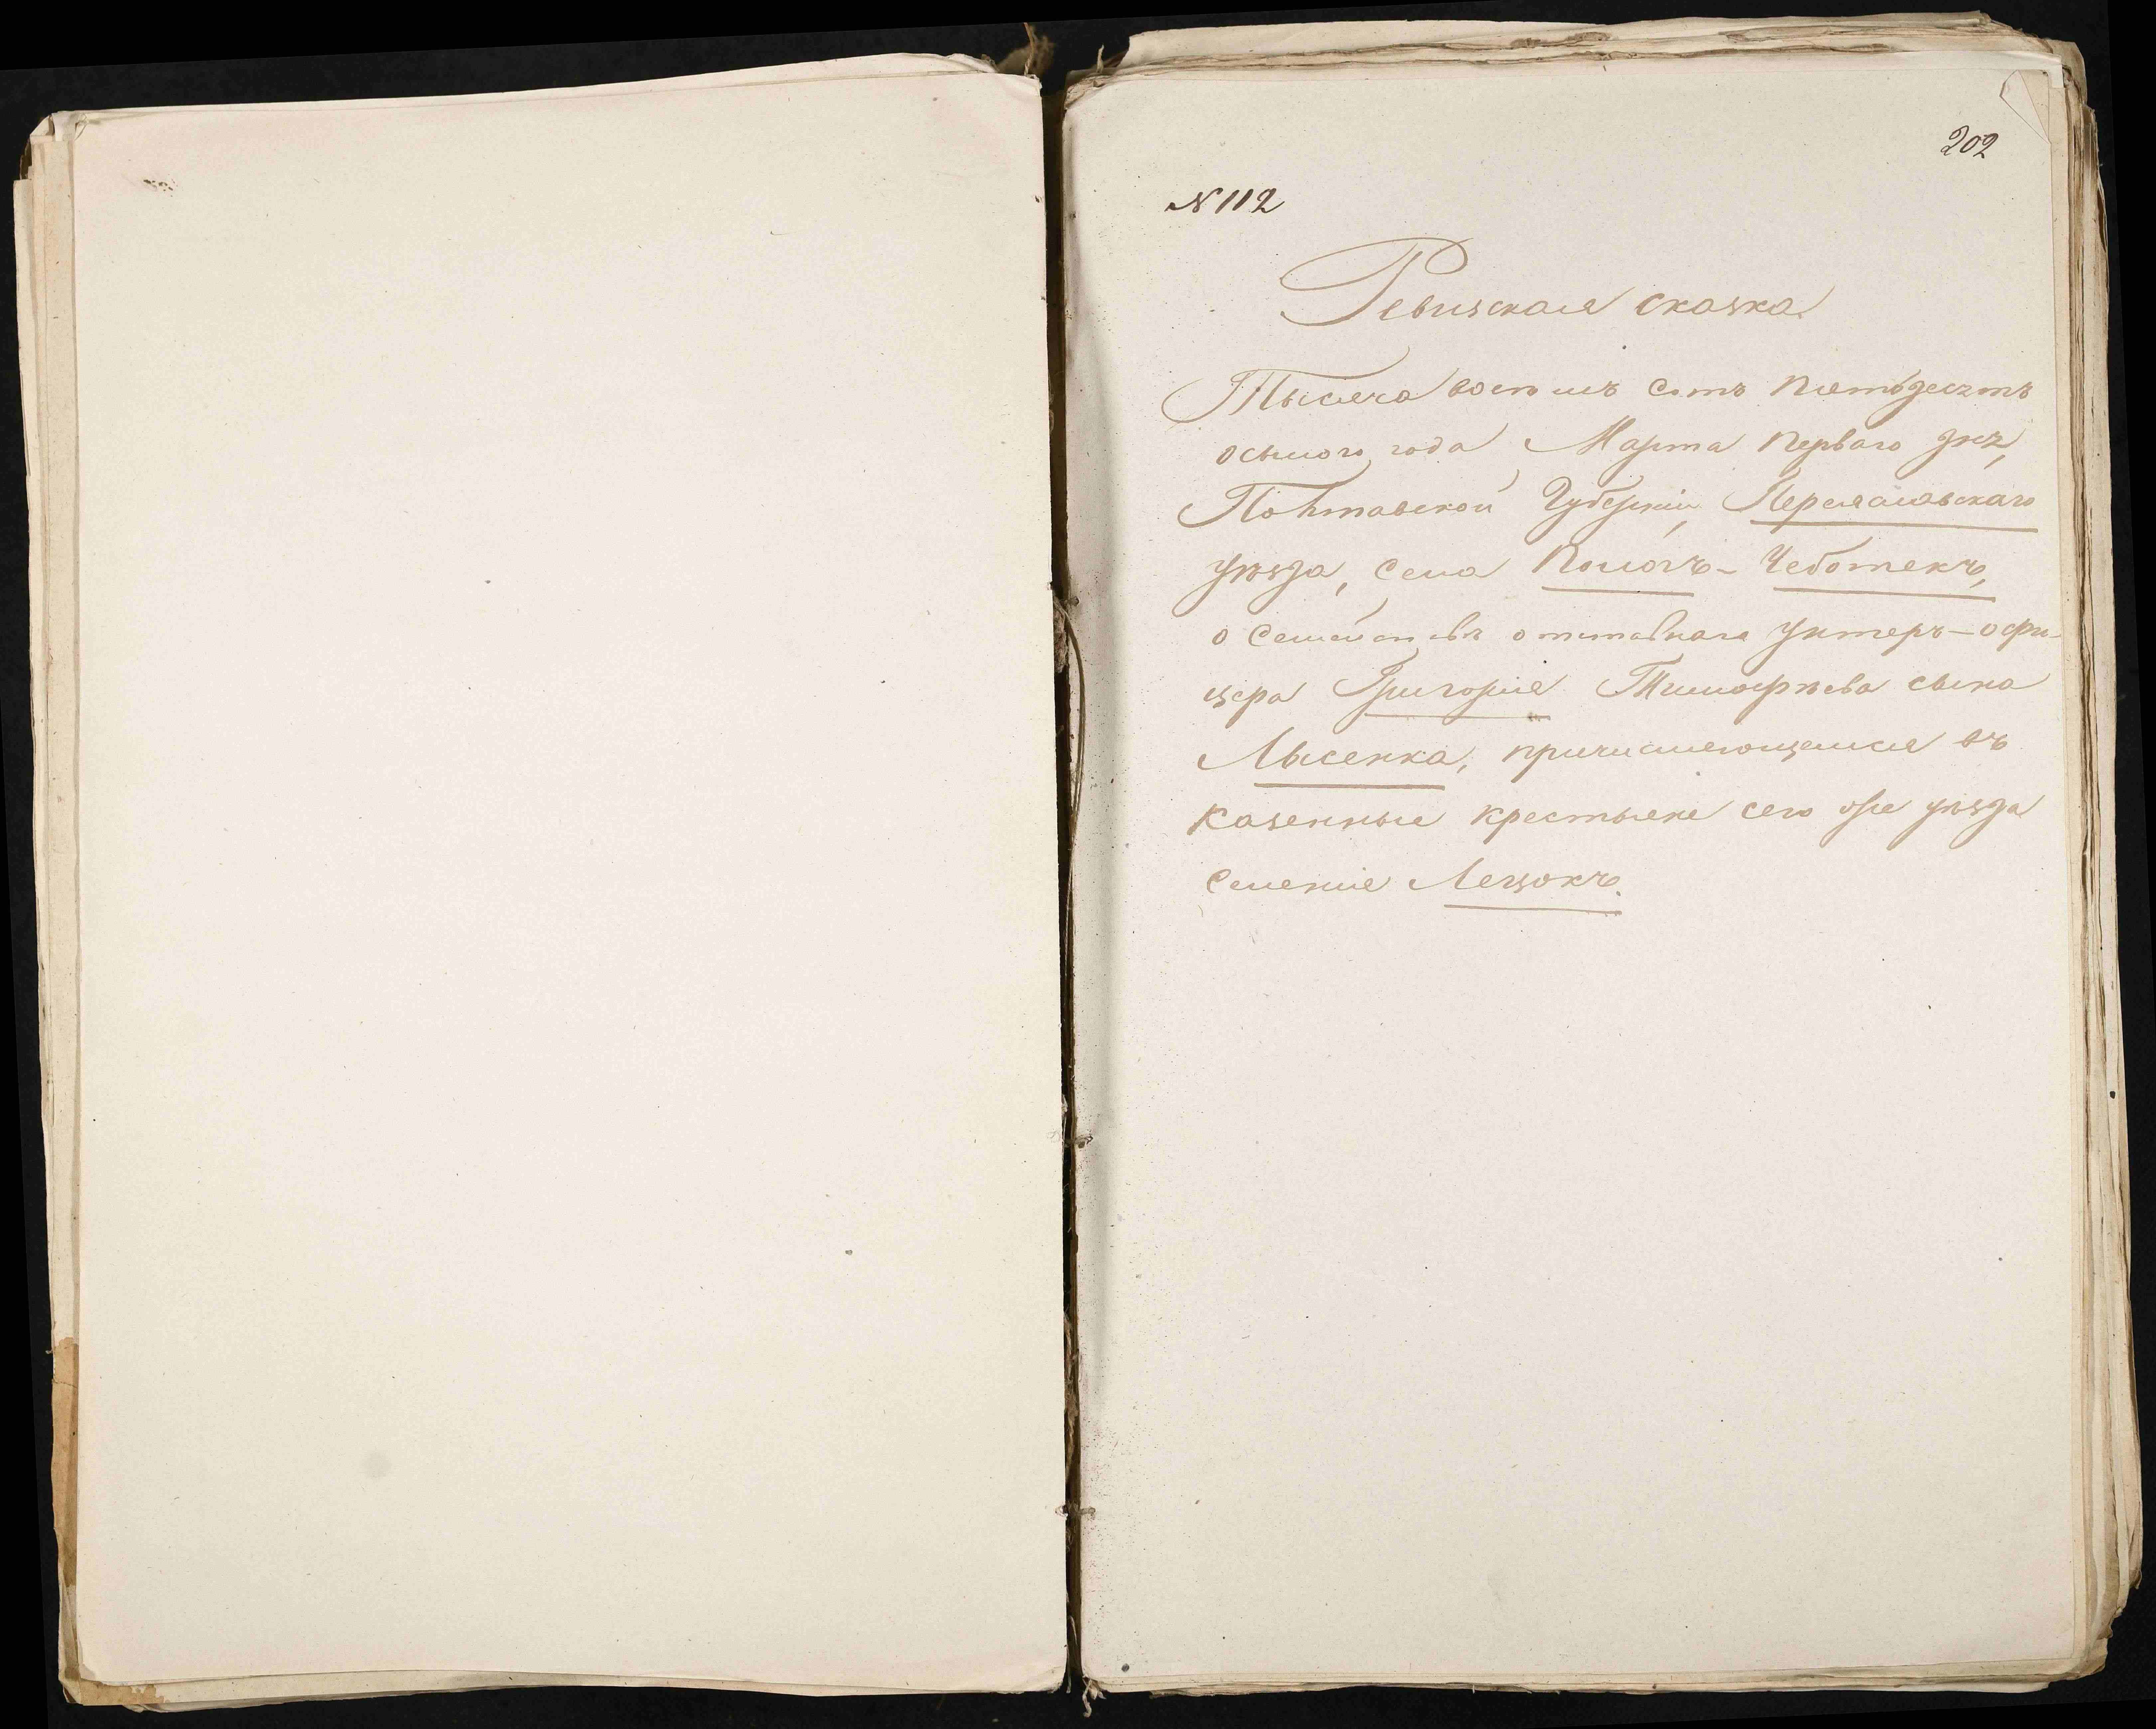 202
№ 112
Ревизская сказка
Тысяча восемь сотъ пятьдесятъ
осьмого года Марта перваго дня,
Полтавской Губерніи, Переяславскаго
уѣзда, села Помокъ-Чеботекъ,
о семействѣ отставнаго Унтеръ-офи-
цера Григорія Тимофѣева сына
Лысенка, причисляющемся въ
казенные крестьяне сего же уѣзда
селенія Лецокъ.